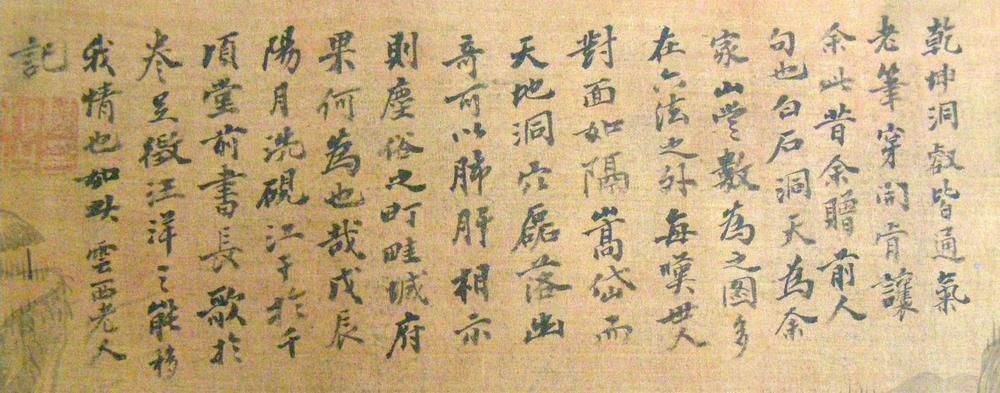 乾坤洞壑皆通氣
老筆穿開肯讓
余此昔余贈前人
句也白石洞天為余
家山嘗數為之図多
在六法之外每嘆世人
對面如隔嵩岱而
天地洞穴磊落幽
奇可以肺肝相示
則塵俗之町畦城府
果何為也哉戊辰
陽月洗硯江干於千
頃堂前書長歌於
卷足徵汪洋之能移
我情也如此雲西老人
記